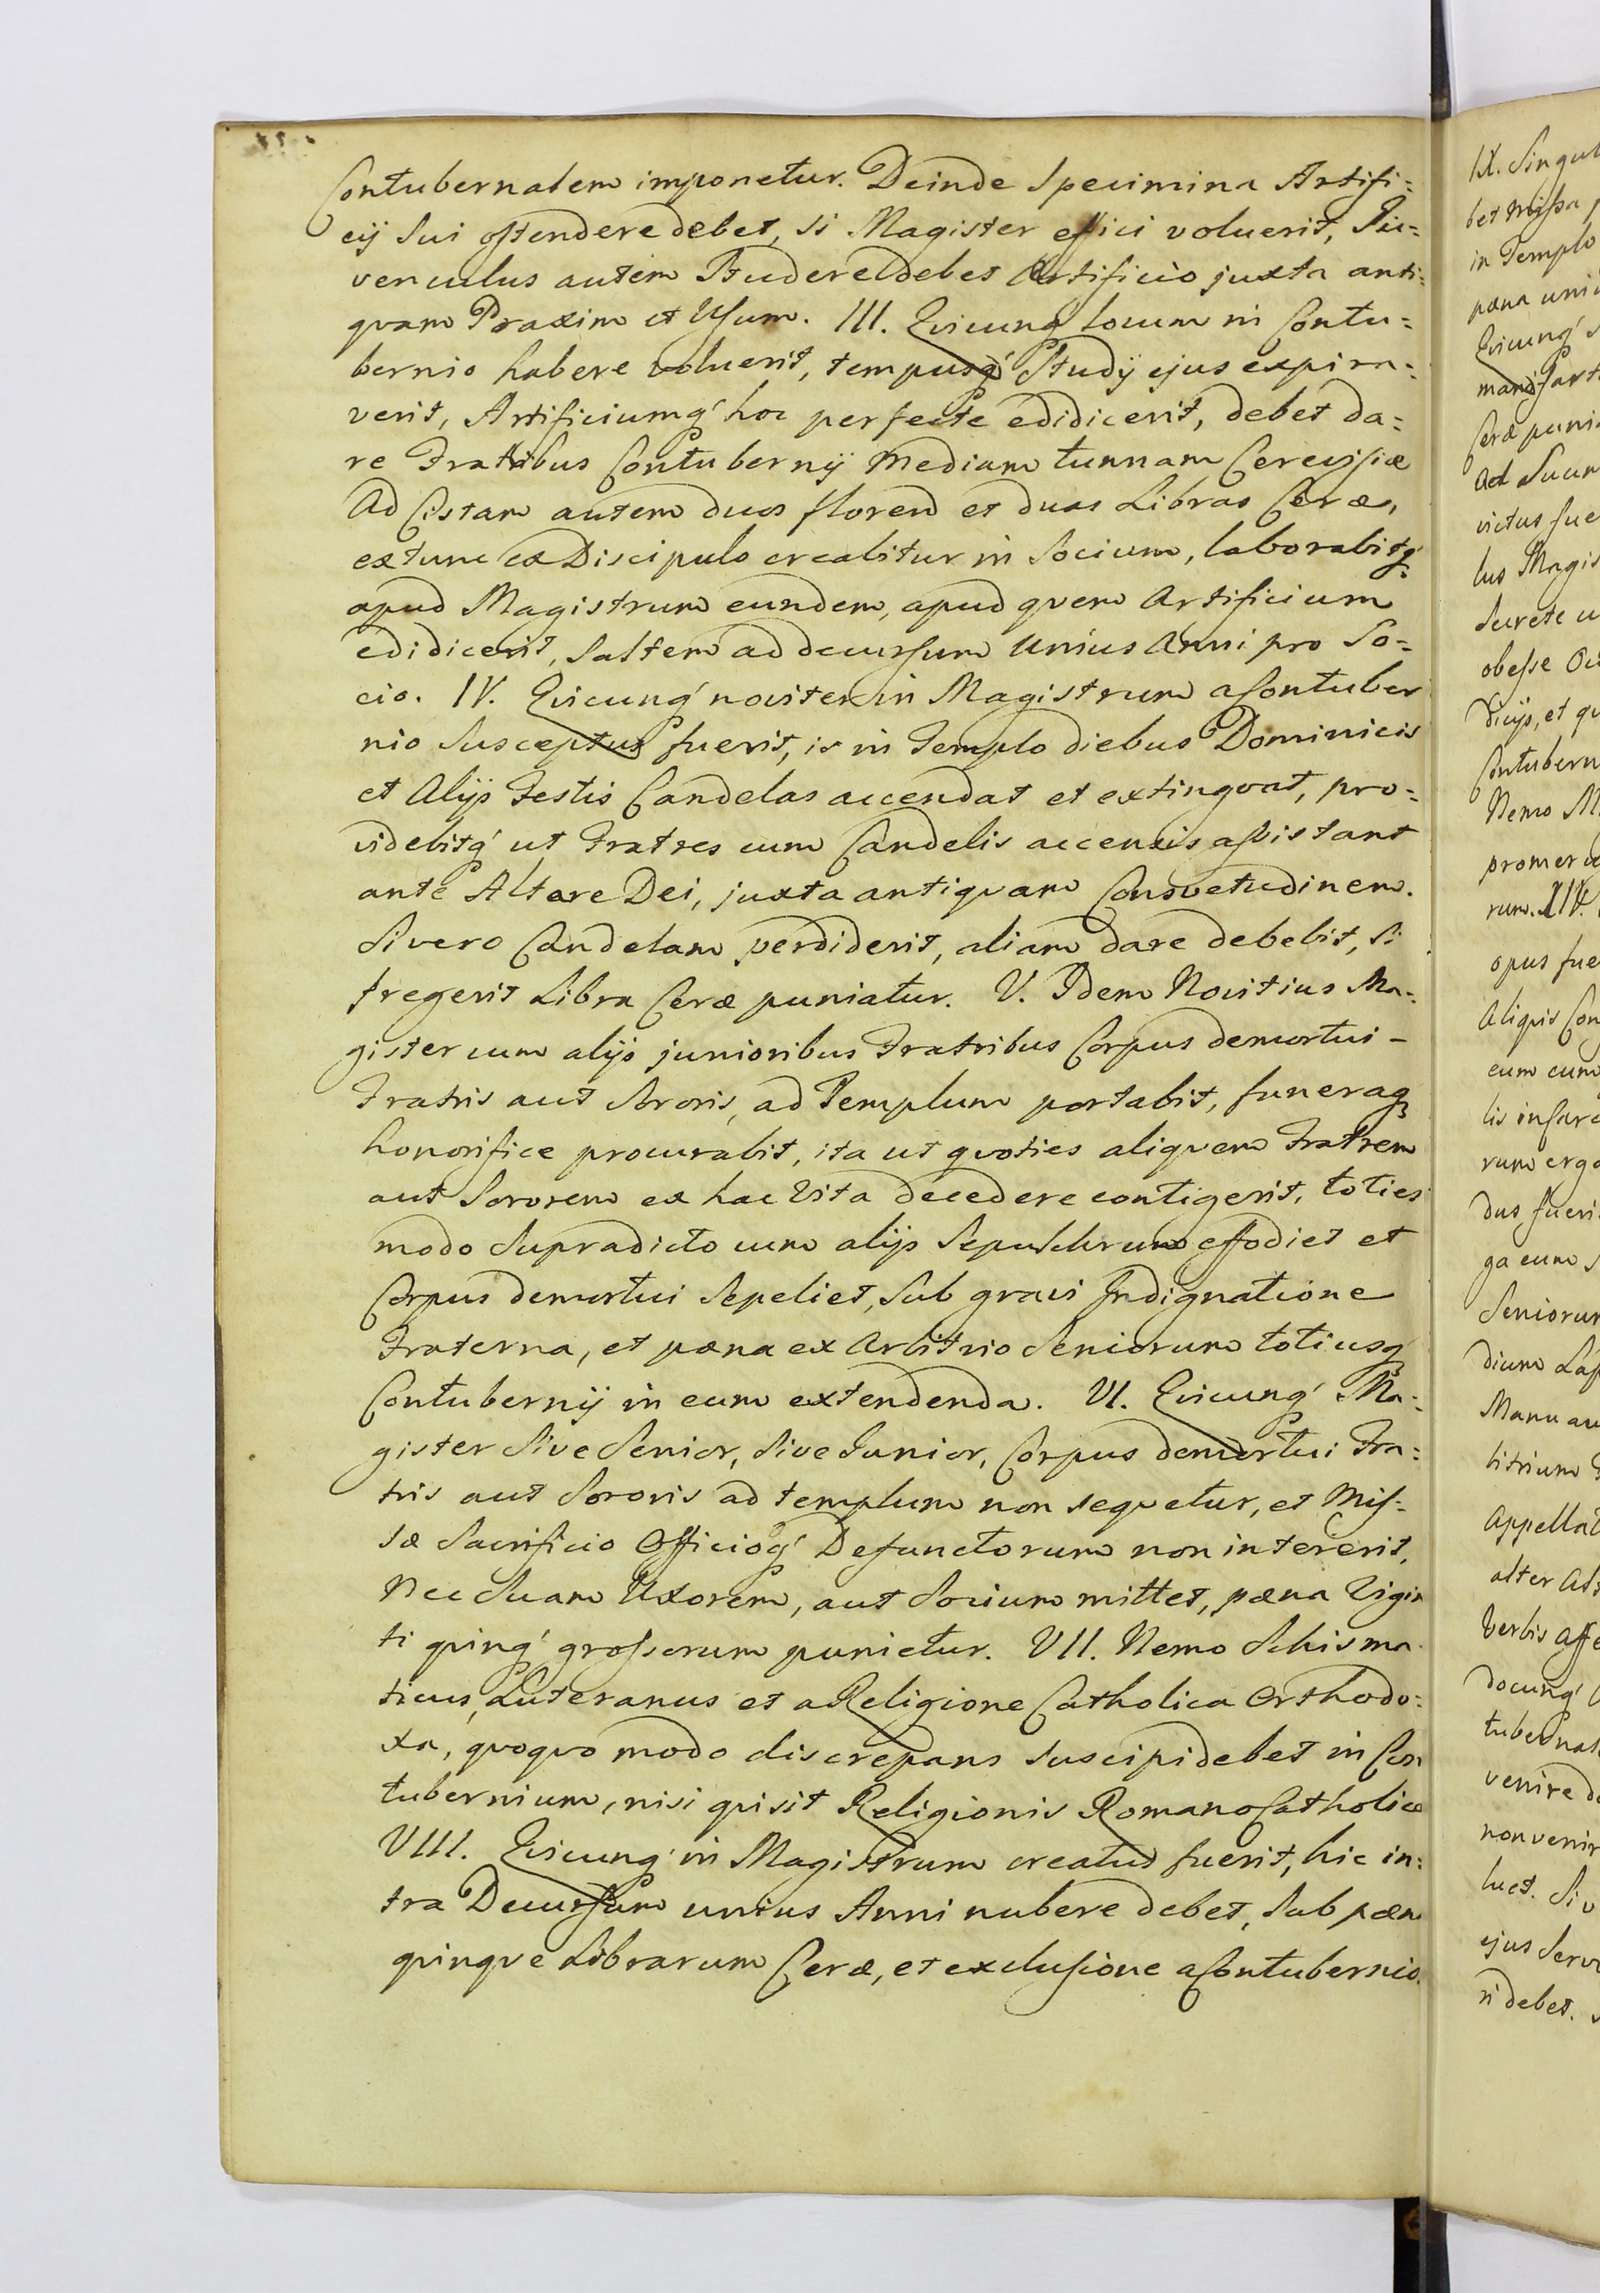 Contubernalem imponetur. Deinde Specimina Artifi=
cij Sui ostendere debet, si Magister effici voluerit, Ju=
venculus autem Studere debet Artificio juxta anti=
quam Praxim et Usum. III. Quicunq́ locum in Contu=
bernio habere voluerit, tempusq́ Studij ejus expira=
verit, Artificiumq́ hoc perfecte edidicerit, debet da=
re Fratribus Contubernij Mediam tunnam Cerevisiæ
Ad Cistam autem duos floren et duas Libras Ceræ,
extunc ex Discipulo creabitur in Socium, laborabitq́
apud Magistrum eundem, apud qvem Artificium
edidicerit, Saltem ad decursum unius Anni pro So=
cio. IV. Quicunq́ noviter in Magistrum a Contuber
nio Susceptus fuerit, is in Templo diebus Dominicis
et Alijs Festis Candelas accendat et extingvat, pro=
videbitq́ ut Fratres cum Candelis accensis assistant
ante Altare Dei, juxta antiqvam Consvetudinem.
Si vero Candelam perdiderit, aliam dare debebit, si
fregerit Libra Ceræ puniatur. V. Idem Novitius Ma=
gister cum alijs junioribus Fratribus Corpus demortui -
Fratris aut Sororis, ad Templum portabit, funeraq́
honorifice procurabit, ita ut qvoties aliqvem Fratrem
aut Sororem ex hac Vita decedere contigerit, toties
modo Supradicto cum alijs Sepulchrum effodiet et
Corpus demortui Sepeliet, Sub gravi Indignatione
Fraterna, et pæna ex Arbitrio Seniorum totiusq́
Contubernij in eum extendenda. VI. Quicunq́ Ma=
gister Sive Senior, Sive Junior, Corpus demortui Fra=
tris aut Sororis ad templum non seqvetur, et Mis=
sæ Sacrificio Officioq́ Defunctorum non intererit,
Nec Suam Uxorem, aut Socium mittet, pæna Vigin
ti qvinq́ grossorum punietur. VII. Nemo Schisma
ticus, Luteranus et a Religione Catholica Orthodo=
xa, qvoqvo modo discrepans suscipi debet in Con
tubernium, nisi qvi sit Religionis Romano Catholicæ
VIII. Quicunq́ in Magistrum creatus fuerit, hic in=
tra Decursum unius Anni nubere debet, Sub pæna
qvinqve Librarum Ceræ, et exclusione a Contubernio.
IX. Singul
bet Missa
in Templo
pæna uni
Quicunq́
Ceræ puni
Ad Suum
victus fue
lus Magis
Secrete
obesse
dicijs, et qv
Contubern
Nemo M
promer
rum. XIV.
opus fue
Aliqvis Con
eum cum
rum erga
dus fueri
ga eum s
Seniorum
dium
Manu au
bitrium
Appellat
alter
Verbis Affe
docunq́
tubernal
venire de
non venir
luet. Si v
ejus Serv
ri debet.